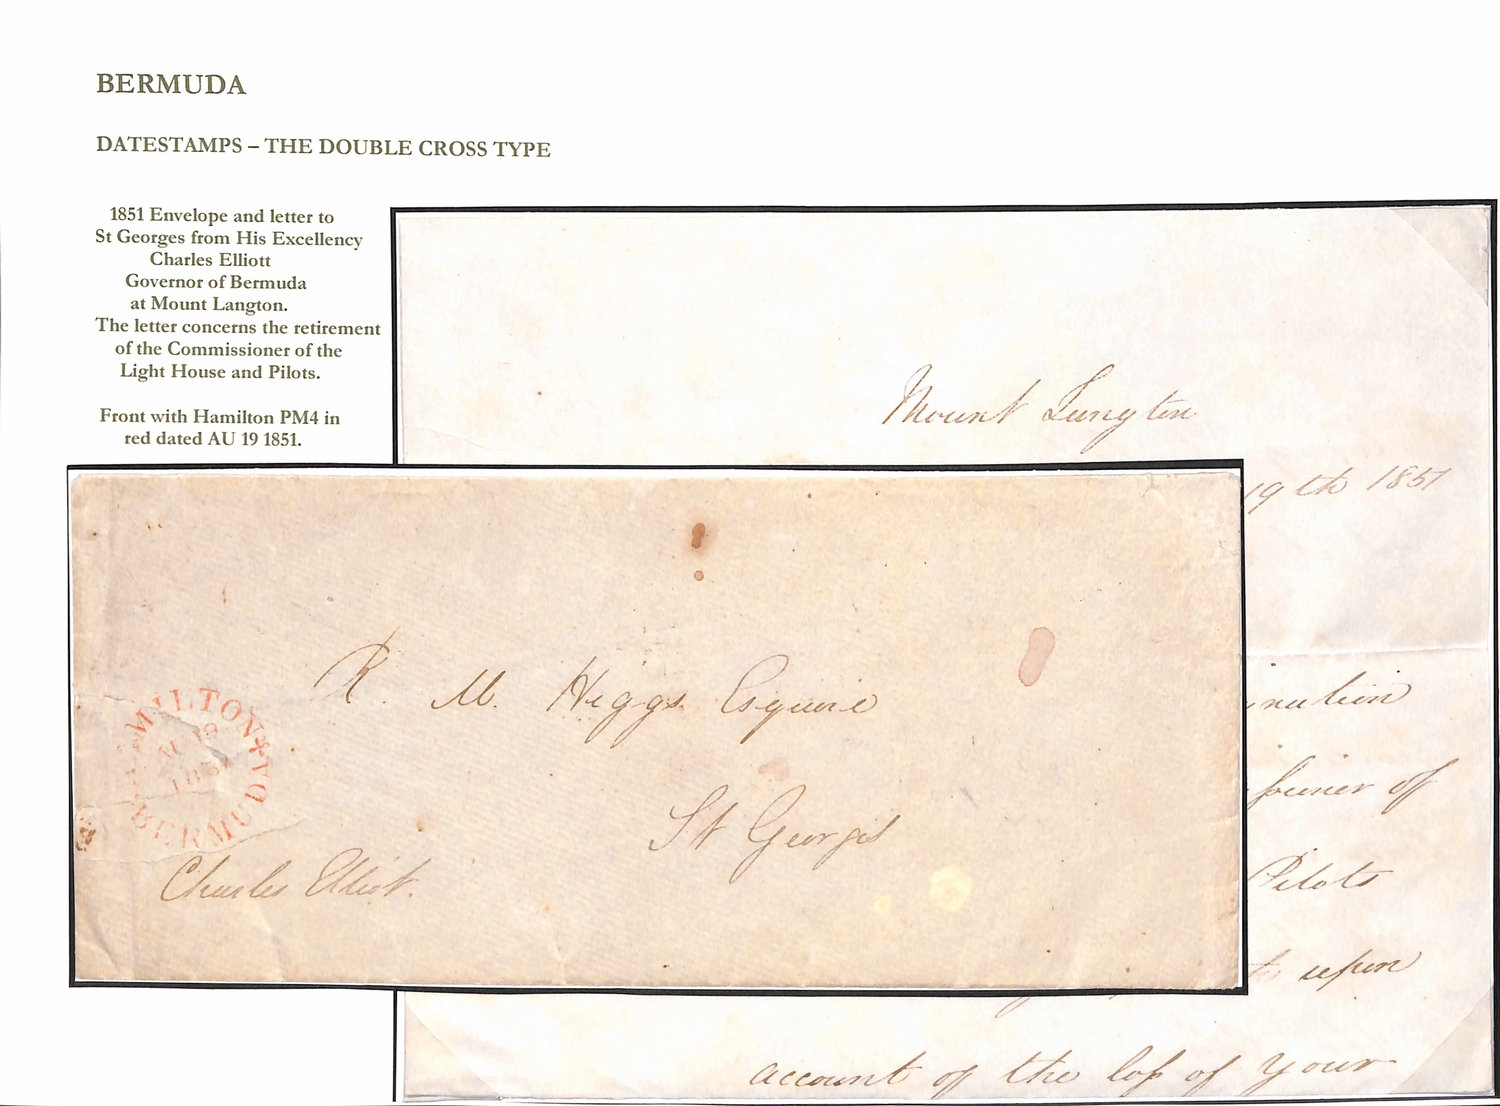 BERMUDA
DATESTAMPS – THE DOUBLE CROSS TYPE
1851 Envelope and letter to
St Georges from His Excellency
Charles Elliott
Governor of Bermuda
at Mount Langton.
The letter concerns the retirement
of the Commissioner of the
Light House and Pilots.
Front with Hamilton PM4 in
red dated AU 19 1851.
Mount Langton
19th 1851
Pilots
upon
account of the loss of your
R. M. Higgs Esquire
St Georges
MILTON
AU 19
185
BERMUDA
Charles Elliot.